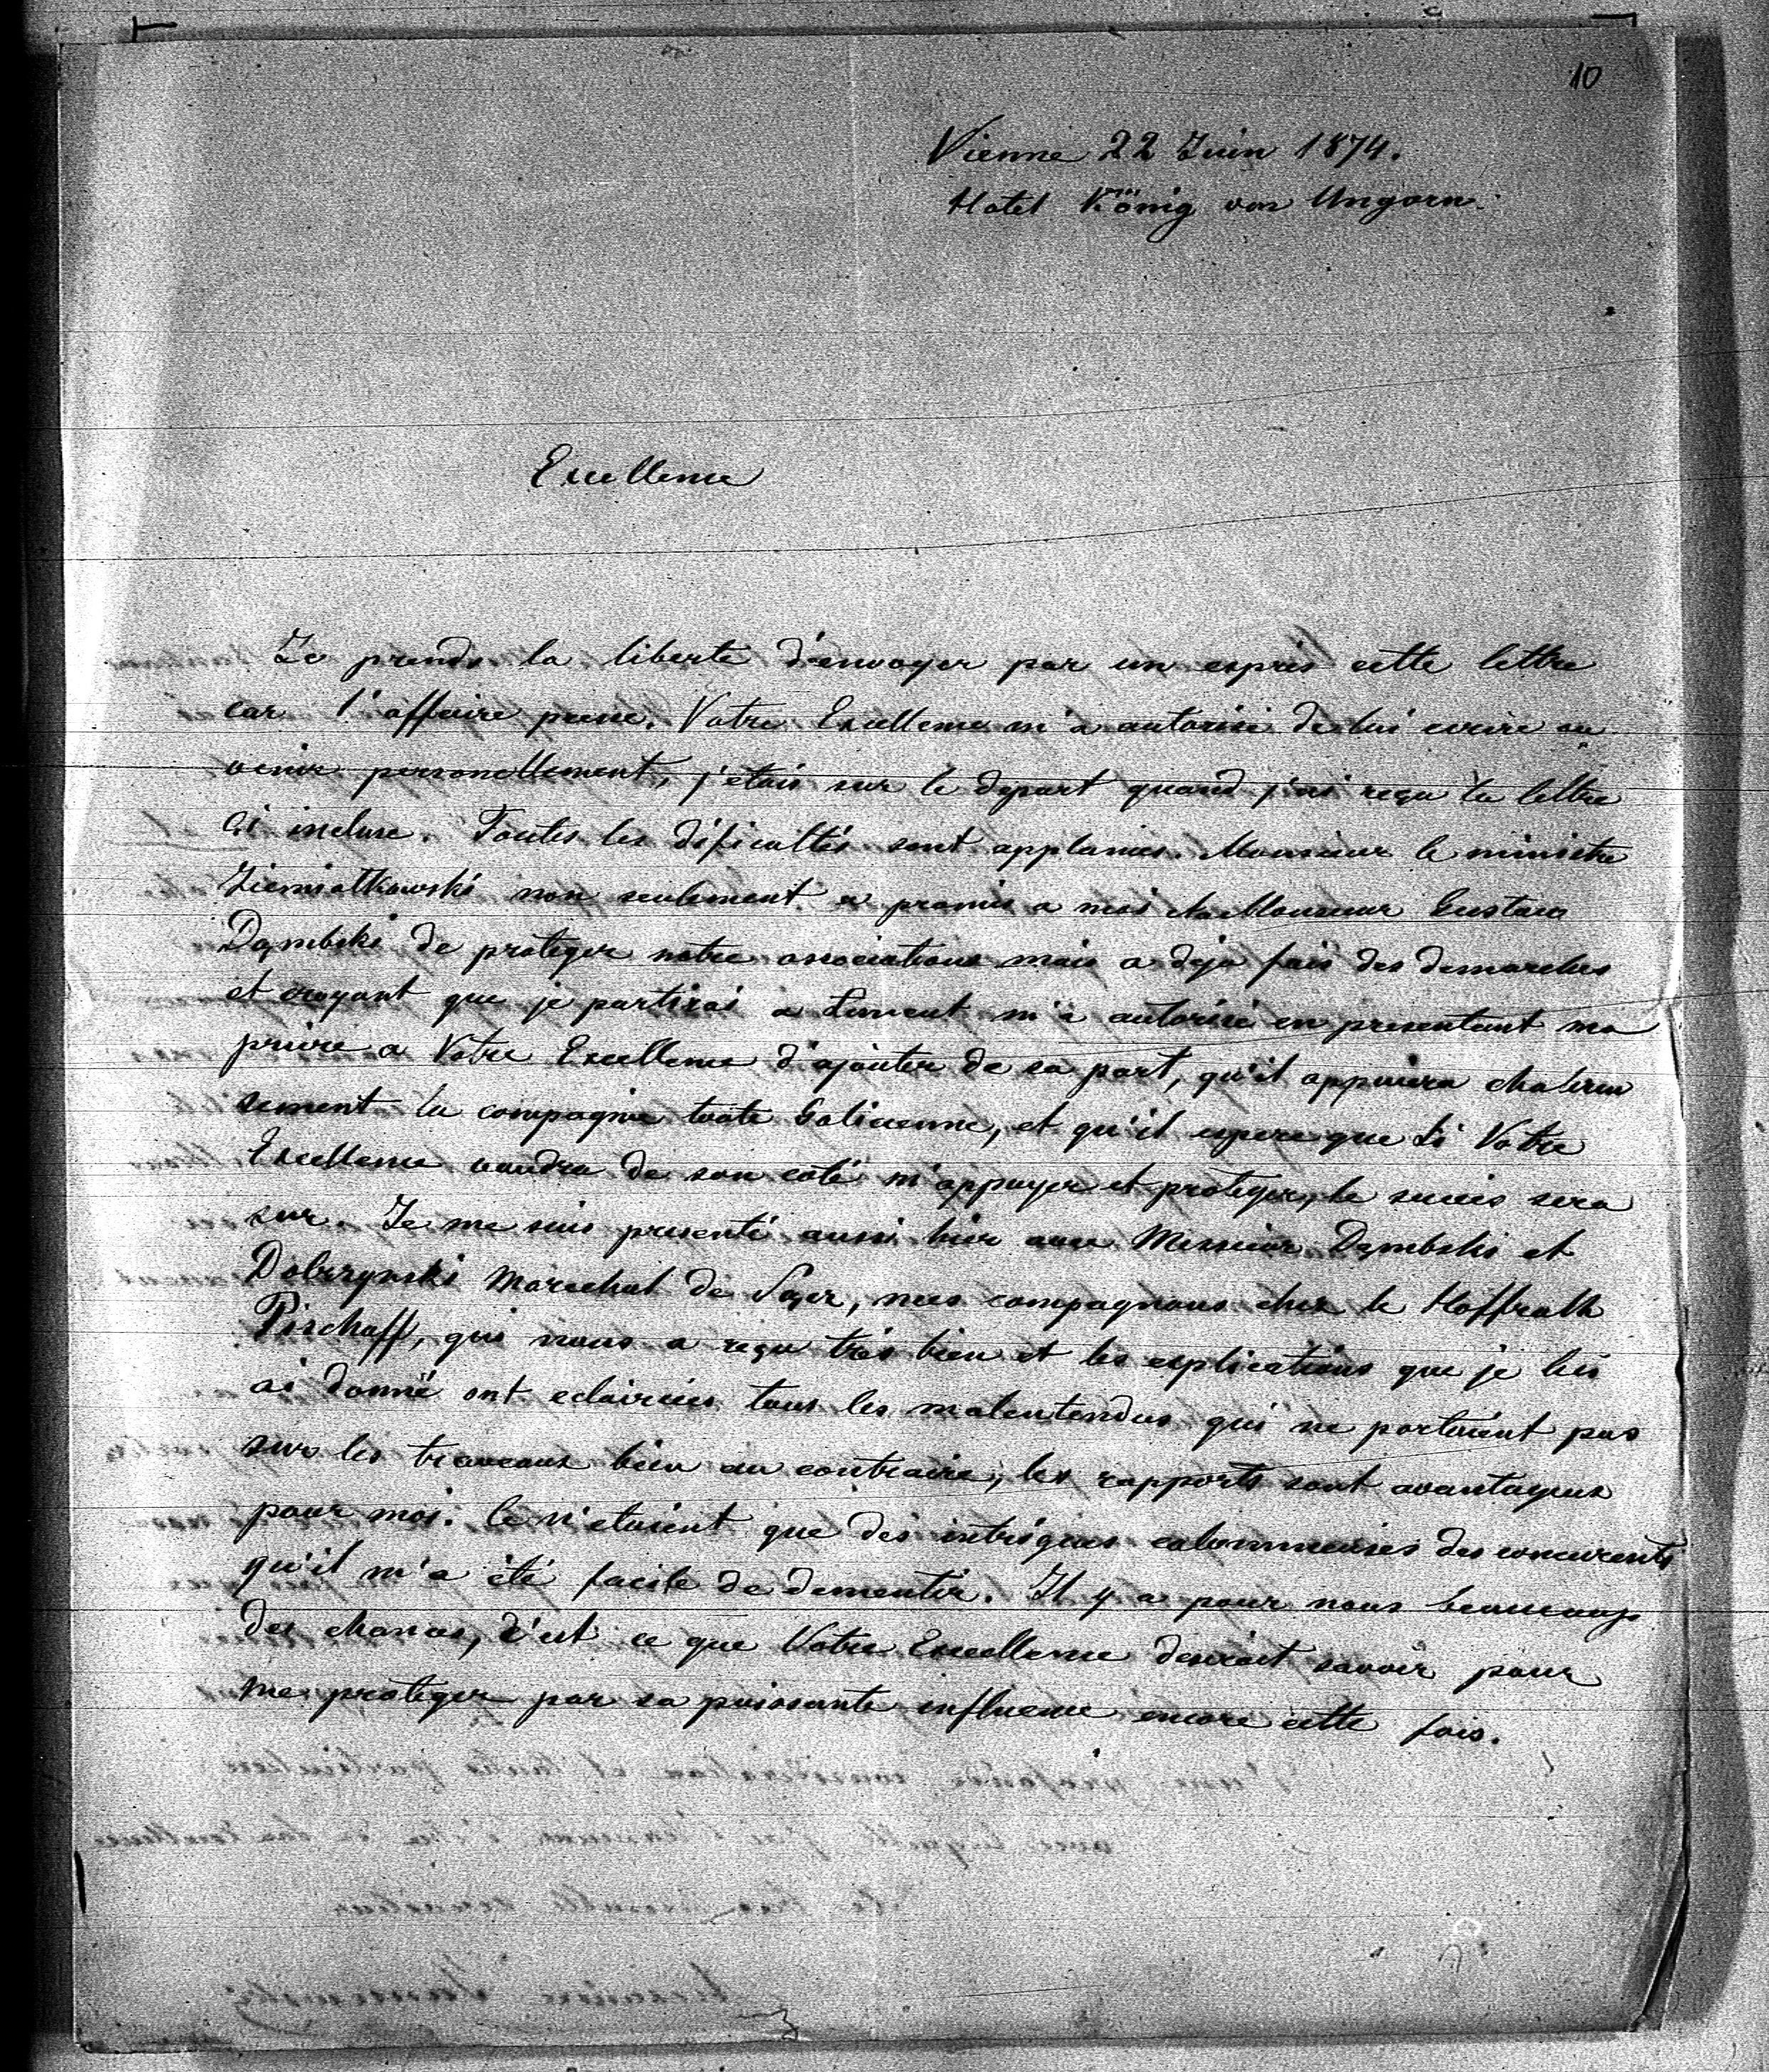 10
Vienne 22 Juin 1874.
Hotel König von Ungarn.
Excellence
Je prends la liberté d'envoyer par un exprès cette lettre
car l'affaire presse. Votre Excellence m'a autorisé de lui ecrire ou
venir personellement, j'etais sur le depart quand j'ai reçu la lettre
ci incluse. Toutes les dificultés sont applanies. Monsieur le ministre
Ziemiatkowski non seulement a promis a moi et a Monsieur Gustave
Dąmbski de proteger notre association mais a deja fais des demarches
et croyant que je partirai a m'a autorisé en presentant ma
prière a Votre Excellence d'ajouter de sa part, qu'il appuiera chaleureu
sement la compagnie toute Galicienne, et qu'il espere que si Votre
Excellence voudra de son coté m'appuyer et proteger, le succès sera
sur. Je me suis presenté aussi hier avec Messieur Dąmbski et
Dobrzynski Marechal de , mes compagnons chez le Hoffrath
Pischoff, qui nous a reçu très bien et les explications que je lui
ai donné ont eclaircies tous les malentendus qui ne portaient pas
sur les traveaux bien au contraire, les rapports sont avantageux
pour moi. Ce n'etaient que des intrigues calomnieuses des concurents
qu'il m'a été facile de dementir. Il y a pour nous beaucoup
des chances, c'est ce que Votre Excellence desirait savoir pour
me proteger par sa puissante influence encore cette fois.